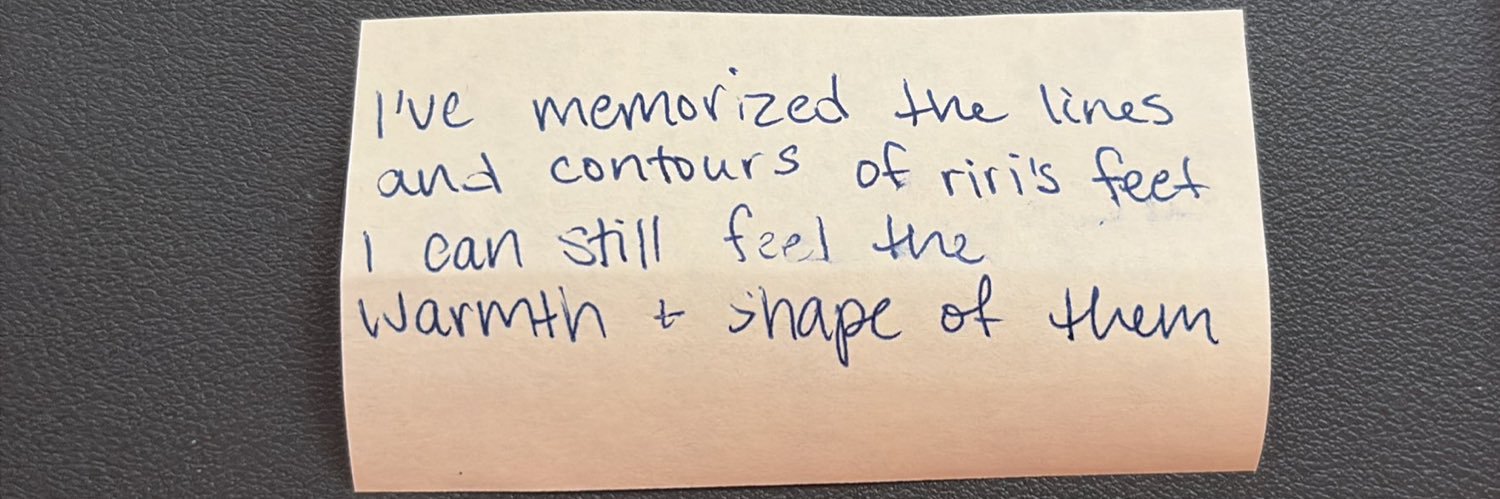 I've memorized the lines
and contours of riri's feet
I can still feel the
warmth + shape of them